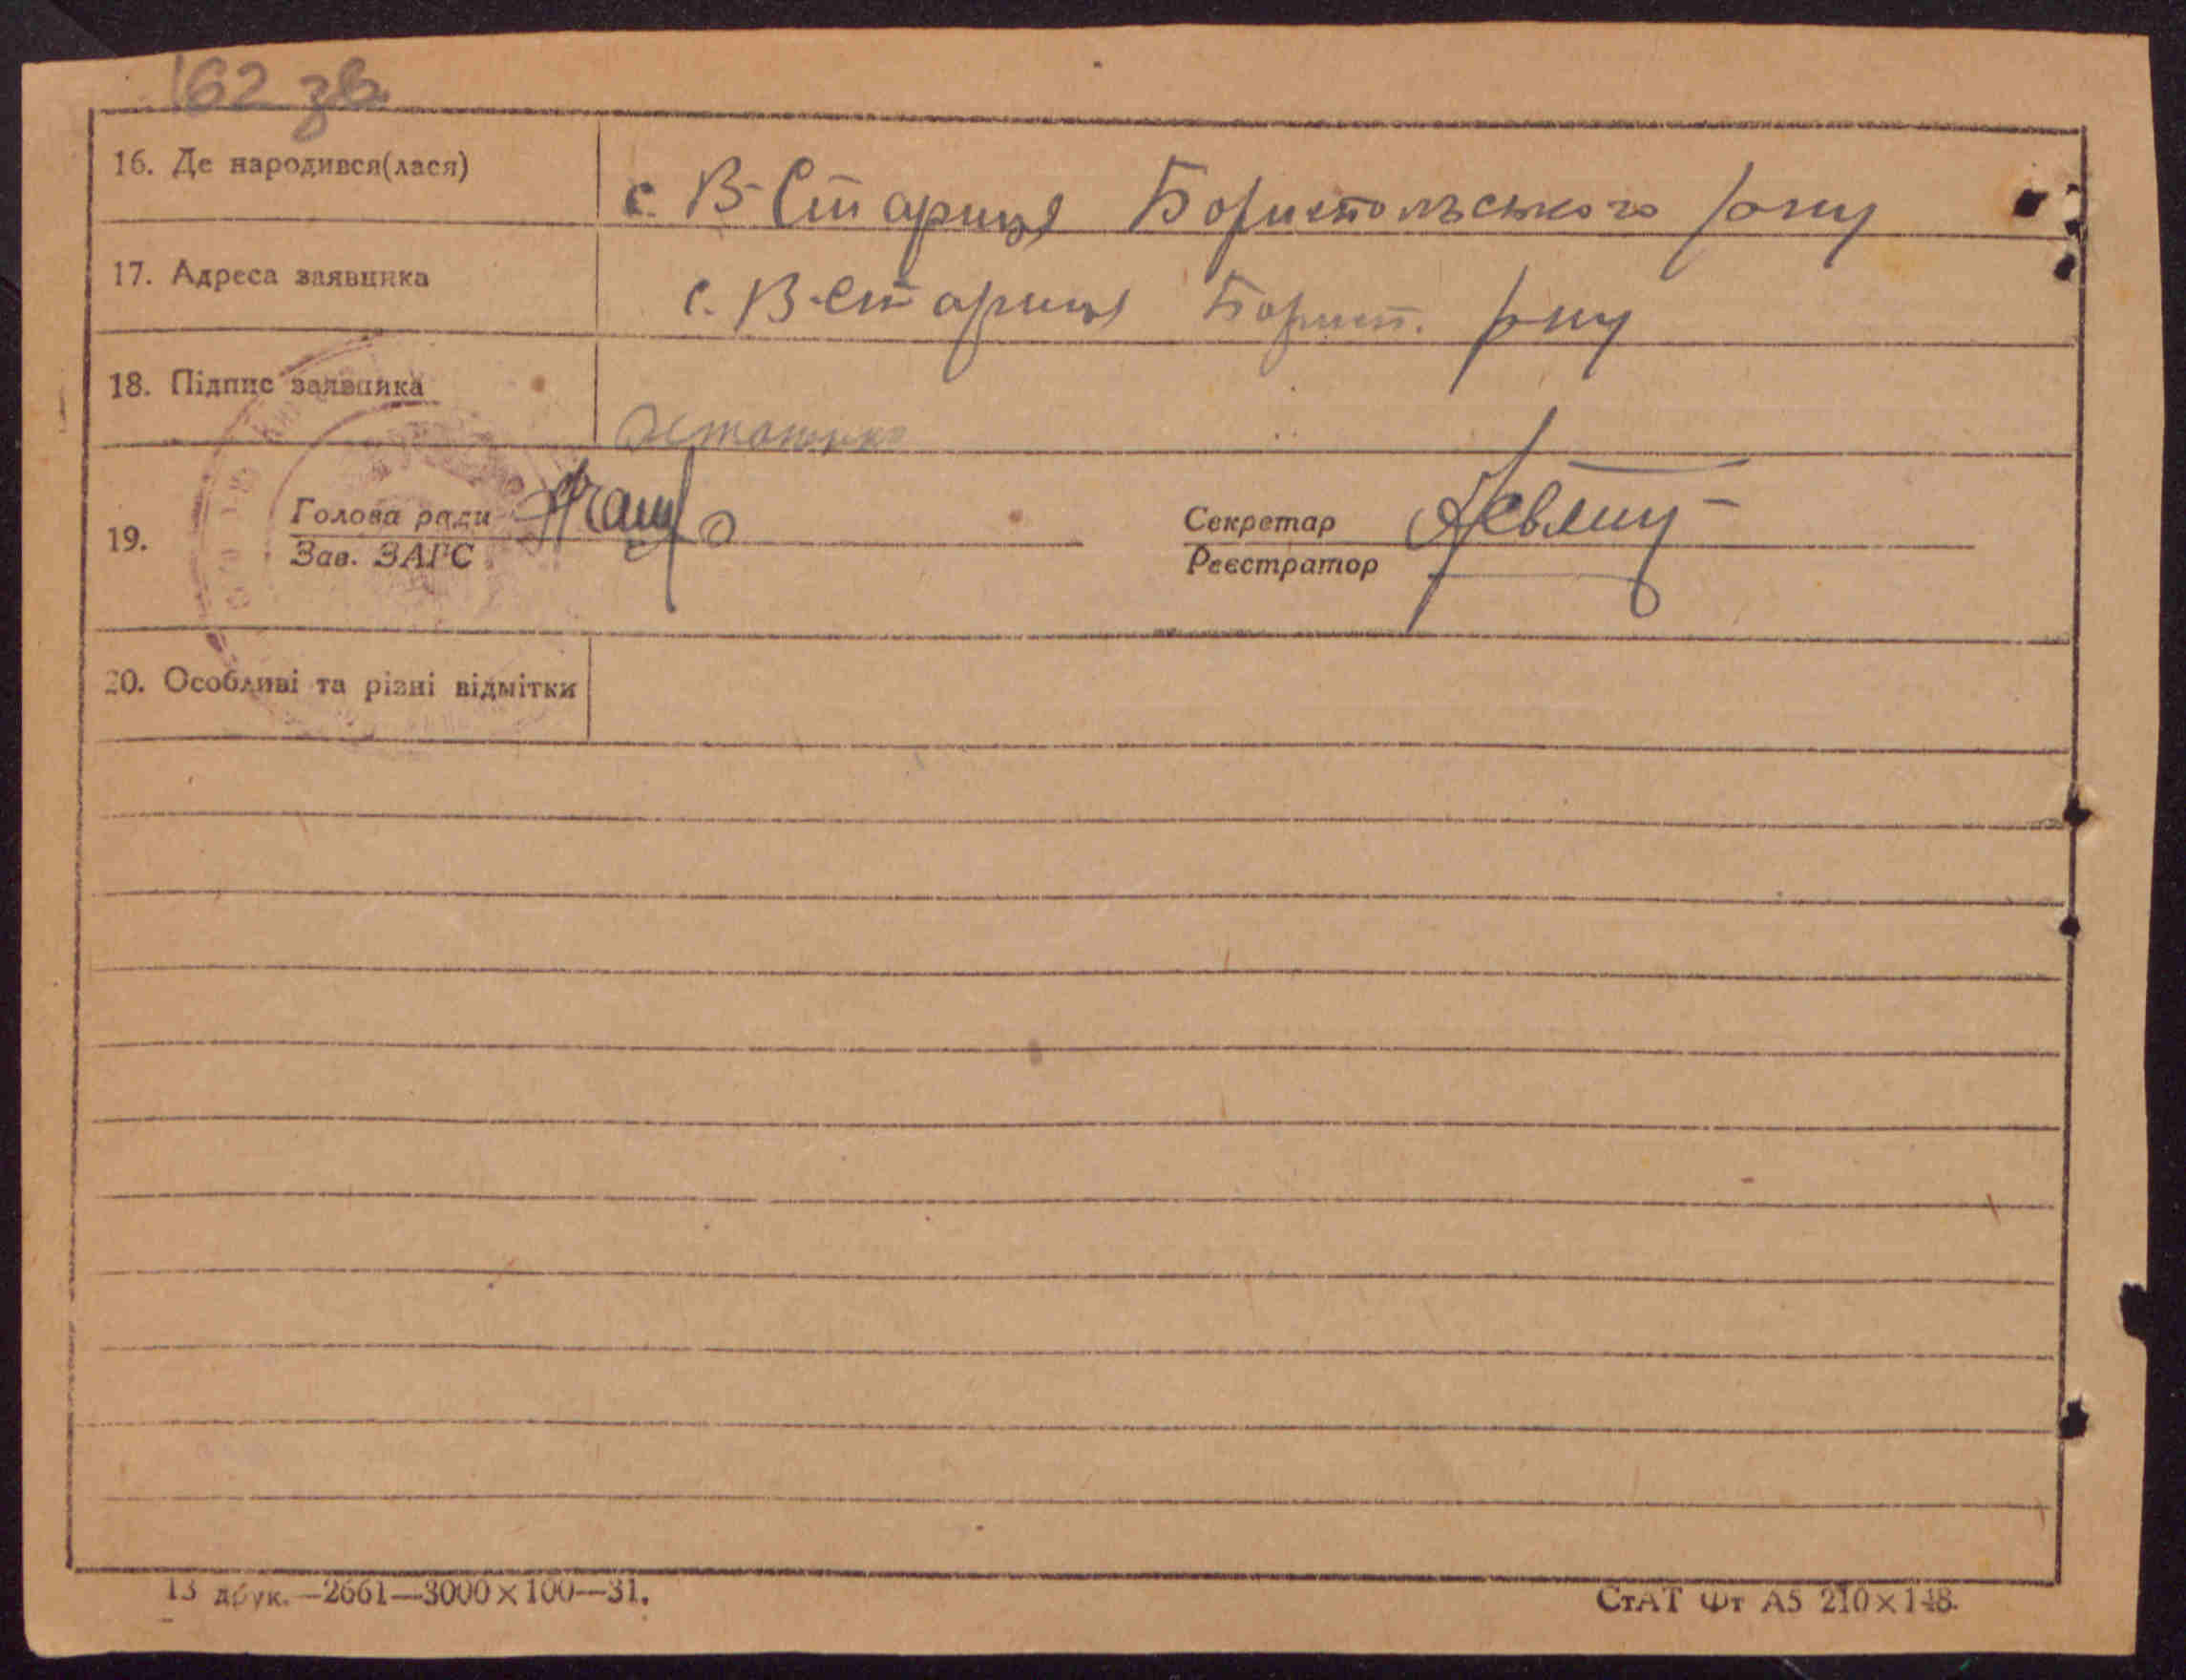 162 зв.
16. Де народився(лася)
с. В-Стариця Бориспольського р-ну
17. Адреса заявника
с. В-Стариця Борисп. р-ну
18. Підпис заявника
19.
Голова ради
Зав. ЗАГС
Секретар
Реєстратор
20. Особливі та різні відмітки
13 друк.—2661—3000×100—31.
СтАТ Фт А5 210×148.